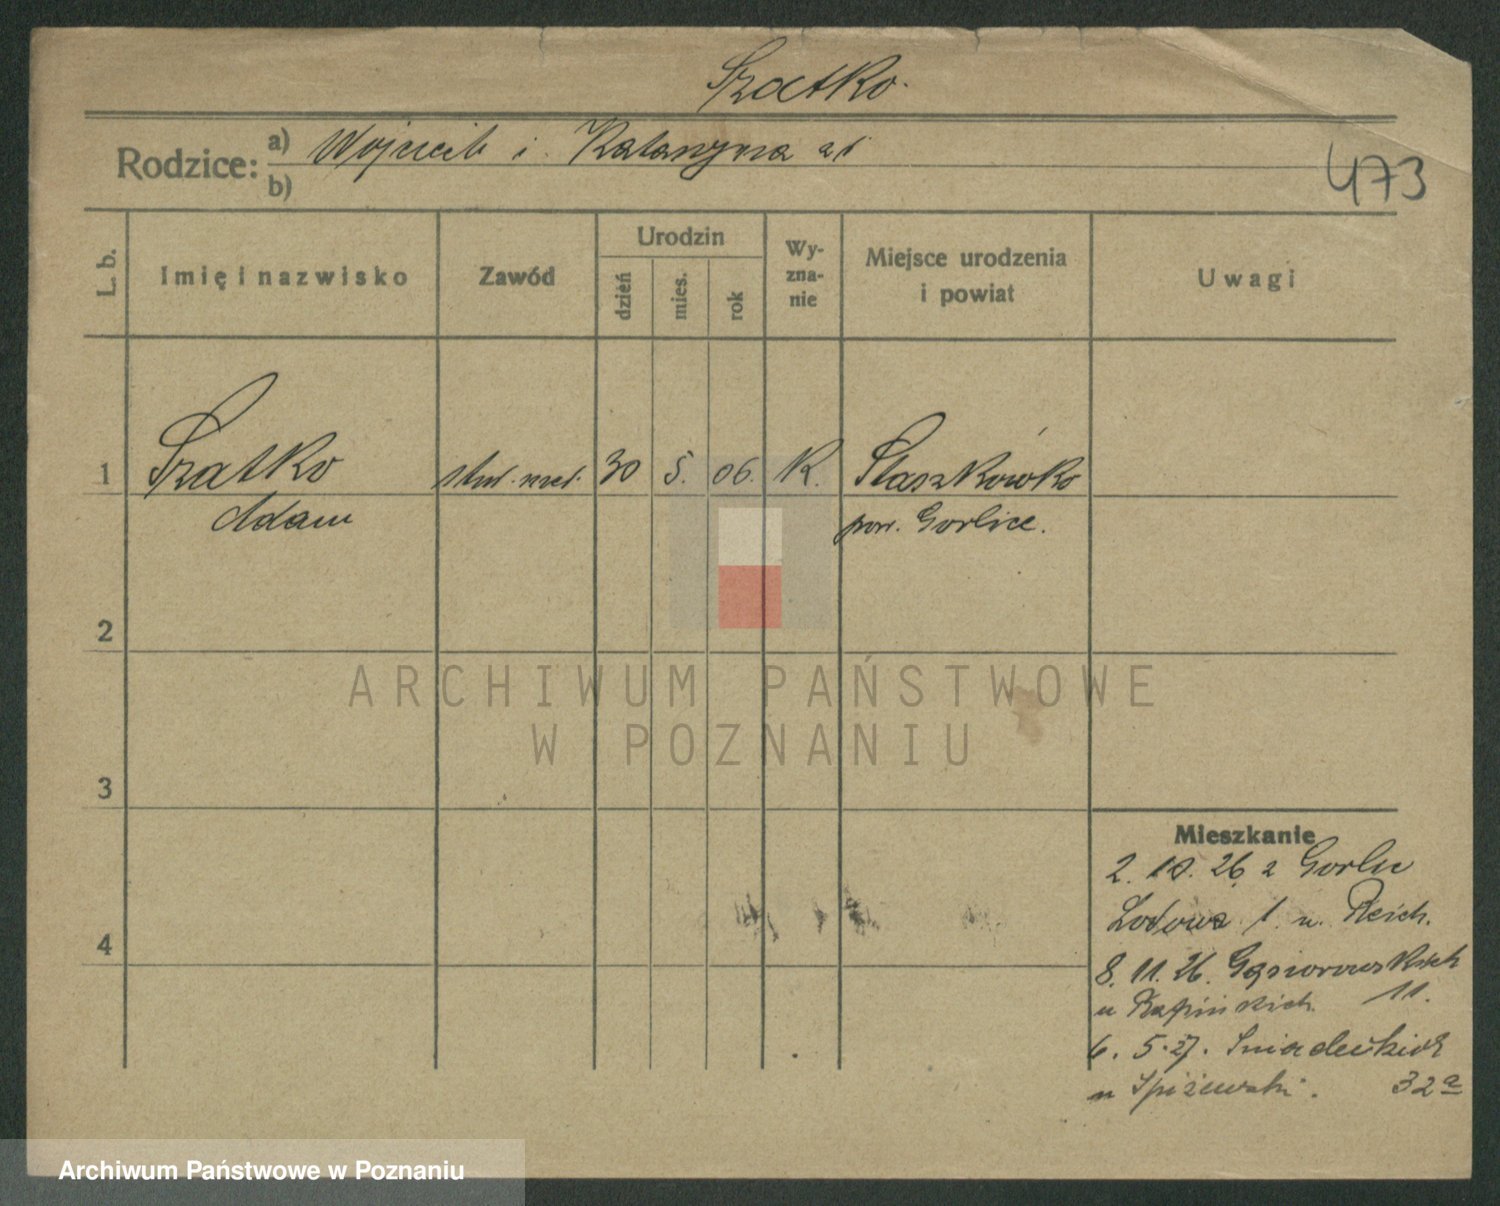 Szatko.
Rodzice: a) Wojciech i Katarzyna
b)
473
L. b.
Imię i nazwisko
Zawód
Urodzin
dzień
mies.
rok
Wy-
zna-
nie
Miejsce urodzenia
i powiat
Uwagi
1 Szatko stud. med. 30 5. 06. K. Staszkówka
Adam pow. Gorlice.
2
3
4
ARCHIWUM PAŃSTWOWE
W POZNANIU
Mieszkanie
2. 10. 26 z Gorlic
1 u. Reich.
8. 11. 26. Gąsiorowskich
u 11.
6. 5. 27. Śniadeckich
u Spiżewski. 32a
Archiwum Państwowe w Poznaniu